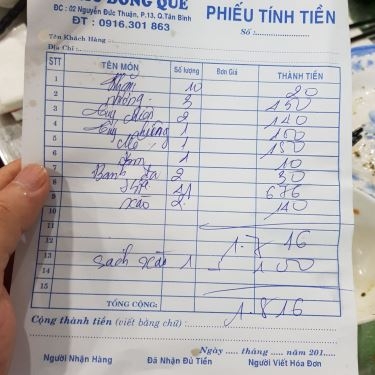 ĐỒNG QUÊ
ĐC : 02 Nguyễn Đức Thuận, P.13, Q.Tân Bình
ĐT : 0916.301 863
PHIẾU TÍNH TIỀN
Số :
Tên Khách Hàng
Địa Chỉ :
STT TÊN MÓN Số lượng Đơn Giá THÀNH TIỀN
1 10 20
2 3 150
3 2 140
4 1 150
5 1 180
6 1 10
7 Bánh đa 2 30
8 676
9 xào 2 140
10
11
12 1.716
13 Sách xào 1 100
14
15
TỔNG CỘNG: 1.816
Cộng thành tiền (viết bằng chữ) :
Ngày ..... tháng ..... năm 201.....
Người Nhận Hàng Đã Nhận Đủ Tiền Người Viết Hóa Đơn